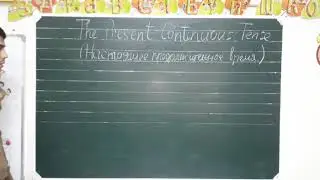 The Present Continuous Tense
(Настоящее продолженное время)